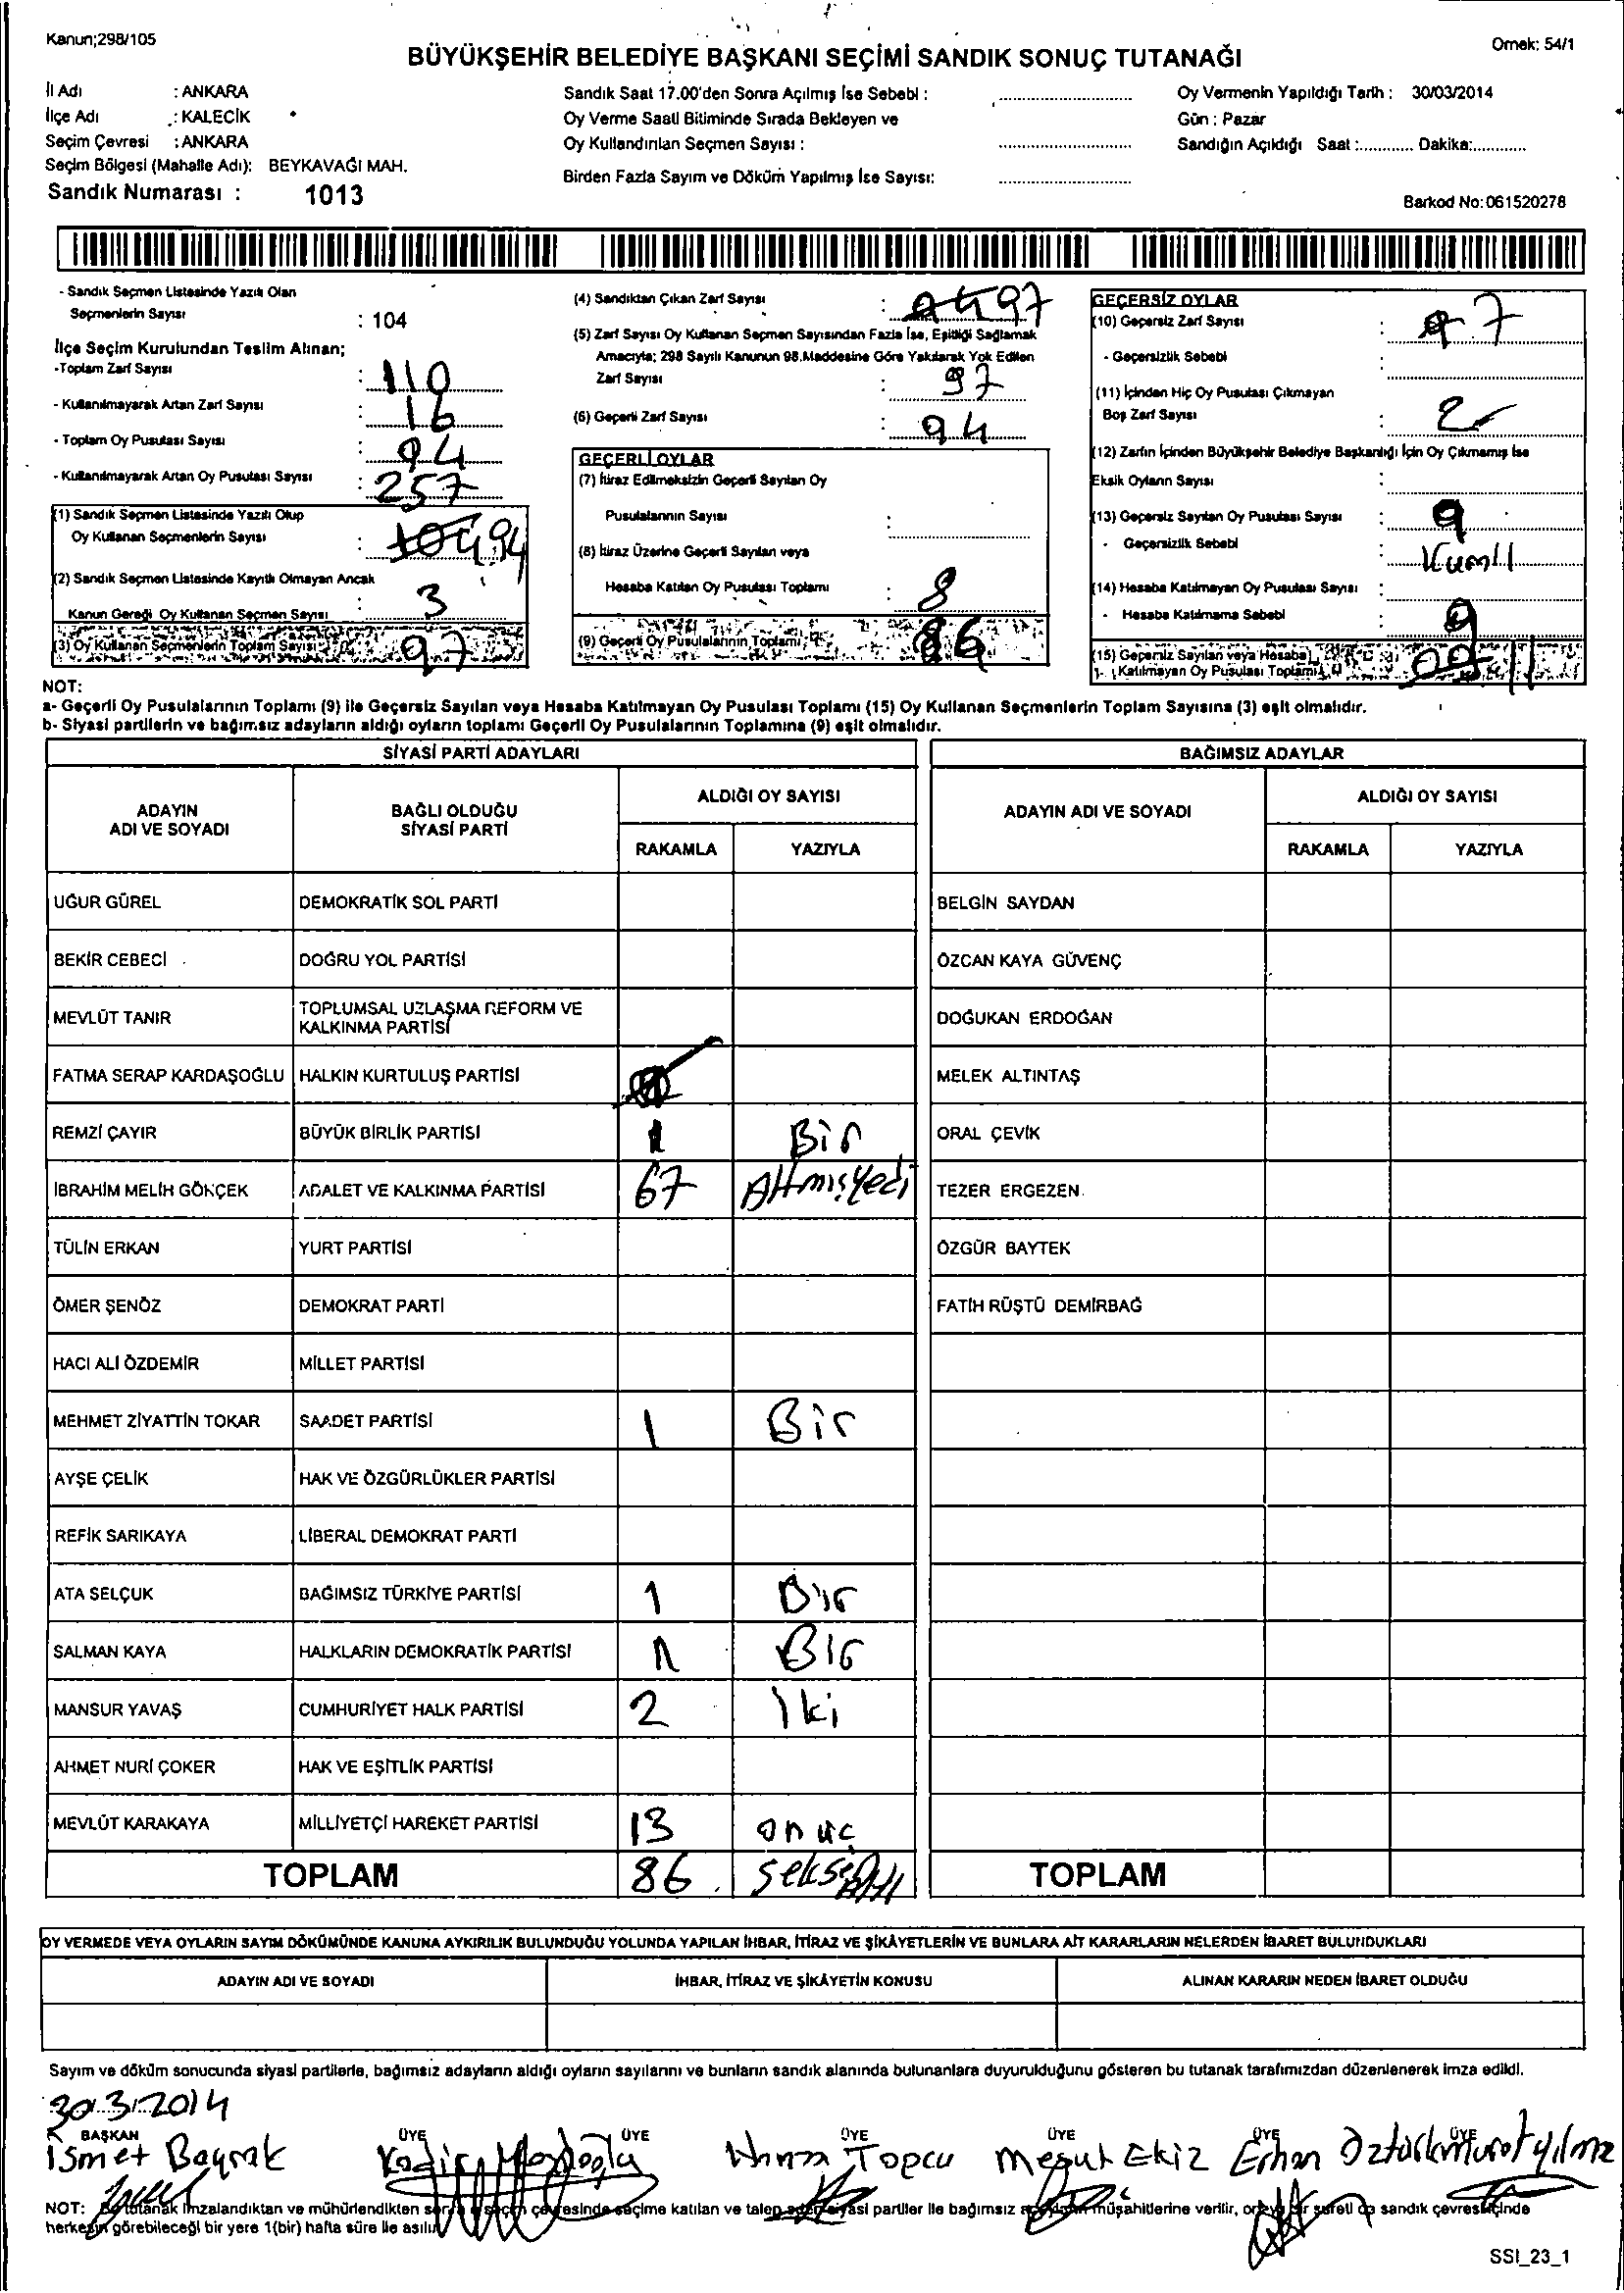 Kanun;298/105
BÜYÜKŞEHİR BELEDİYE BAŞKANI SEÇİMİ SANDIK SONUÇ TUTANAĞI
Örnek: 54/1
İl Adı : ANKARA
İlçe Adı : KALECİK
Seçim Çevresi : ANKARA
Seçim Bölgesi (Mahalle Adı): BEYKAVAĞI MAH.
Sandık Numarası : 1013
Sandık Saat 17.00'den Sonra Açılmış İse Sebebi :
Oy Verme Saati Bitiminde Sırada Bekleyen ve
Oy Kullandırılan Seçmen Sayısı :
Birden Fazla Sayım ve Döküm Yapılmış İse Sayısı:
Oy Vermenin Yapıldığı Tarih : 30/03/2014
Gün : Pazar
Sandığın Açıldığı Saat :............ Dakika:............
Barkod No:061520278
- Sandık Seçmen Listesinde Yazılı Olan
Seçmenlerin Sayısı : 104
İlçe Seçim Kurulundan Teslim Alınan;
-Toplam Zarf Sayısı : 110
- Kullanılmayarak Artan Zarf Sayısı : 16
- Toplam Oy Pusulası Sayısı : 94
- Kullanılmayarak Artan Oy Pusulası Sayısı : 257
(1) Sandık Seçmen Listesinde Yazılı Olup
Oy Kullanan Seçmenlerin Sayısı : 94
(2) Sandık Seçmen Listesinde Kayıtlı Olmayan Ancak
Kanun Gereği Oy Kullanan Seçmen Sayısı : 3
(3) Oy Kullanan Seçmenlerin Toplam Sayısı : 97
(4) Sandıktan Çıkan Zarf Sayısı : 97
(5) Zarf Sayısı Oy Kullanan Seçmen Sayısından Fazla İse, Eşitliği Sağlamak
Amacıyla; 298 Sayılı Kanunun 98.Maddesine Göre Yakılarak Yok Edilen
Zarf Sayısı : 97
(6) Geçerli Zarf Sayısı : 94
GEÇERLİ OYLAR
(7) İtiraz Edilmeksizin Geçerli Sayılan Oy
Pusulalarının Sayısı :
(8) İtiraz Üzerine Geçerli Sayılan veya
Hesaba Katılan Oy Pusulası Toplamı : 8
(9) Geçerli Oy Pusulalarının Toplamı : 86
GEÇERSİZ OYLAR
(10) Geçersiz Zarf Sayısı : 7
- Geçersizlik Sebebi :
(11) İçinden Hiç Oy Pusulası Çıkmayan
Boş Zarf Sayısı : 2
(12) Zarfın İçinden Büyükşehir Belediye Başkanlığı İçin Oy Çıkmamış İse
Eksik Oyların Sayısı :
(13) Geçersiz Sayılan Oy Pusulası Sayısı : 9
- Geçersizlik Sebebi :
(14) Hesaba Katılmayan Oy Pusulası Sayısı :
- Hesaba Katılmama Sebebi : 9
(15) Geçersiz Sayılan veya Hesaba
Katılmayan Oy Pusulası Toplamı : 11
NOT:
a- Geçerli Oy Pusulalarının Toplamı (9) ile Geçersiz Sayılan veya Hesaba Katılmayan Oy Pusulası Toplamı (15) Oy Kullanan Seçmenlerin Toplam Sayısına (3) eşit olmalıdır.
b- Siyasi partilerin ve bağımsız adayların aldığı oyların toplamı Geçerli Oy Pusulalarının Toplamına (9) eşit olmalıdır.
SİYASİ PARTİ ADAYLARI
ADAYIN ADI VE SOYADI
BAĞLI OLDUĞU SİYASİ PARTİ
ALDIĞI OY SAYISI
RAKAMLA YAZIYLA
UĞUR GÜREL DEMOKRATİK SOL PARTİ
BEKİR CEBECİ DOĞRU YOL PARTİSİ
MEVLÜT TANIR TOPLUMSAL UZLAŞMA REFORM VE KALKINMA PARTİSİ
FATMA SERAP KARDAŞOĞLU HALKIN KURTULUŞ PARTİSİ
REMZİ ÇAYIR BÜYÜK BİRLİK PARTİSİ 1 Bir
İBRAHİM MELİH GÖKÇEK ADALET VE KALKINMA PARTİSİ 67 Altmışyedi
TÜLİN ERKAN YURT PARTİSİ
ÖMER ŞENÖZ DEMOKRAT PARTİ
HACI ALİ ÖZDEMİR MİLLET PARTİSİ
MEHMET ZİYATTİN TOKAR SAADET PARTİSİ 1 Bir
AYŞE ÇELİK HAK VE ÖZGÜRLÜKLER PARTİSİ
REFİK SARIKAYA LİBERAL DEMOKRAT PARTİ
ATA SELÇUK BAĞIMSIZ TÜRKİYE PARTİSİ 1 Bir
SALMAN KAYA HALKLARIN DEMOKRATİK PARTİSİ 1 Bir
MANSUR YAVAŞ CUMHURİYET HALK PARTİSİ 2 İki
AHMET NURİ ÇOKER HAK VE EŞİTLİK PARTİSİ
MEVLÜT KARAKAYA MİLLİYETÇİ HAREKET PARTİSİ 13 onuç
TOPLAM 86
BAĞIMSIZ ADAYLAR
ADAYIN ADI VE SOYADI
ALDIĞI OY SAYISI
RAKAMLA YAZIYLA
BELGİN SAYDAN
ÖZCAN KAYA GÜVENÇ
DOĞUKAN ERDOĞAN
MELEK ALTINTAŞ
ORAL ÇEVİK
TEZER ERGEZEN
ÖZGÜR BAYTEK
FATİH RÜŞTÜ DEMİRBAĞ
TOPLAM
OY VERMEDE VEYA OYLARIN SAYIM DÖKÜMÜNDE KANUNA AYKIRILIK BULUNDUĞU YOLUNDA YAPILAN İHBAR, İTİRAZ VE ŞİKÂYETLERİN VE BUNLARA AİT KARARLARIN NELERDEN İBARET BULUNDUKLARI
ADAYIN ADI VE SOYADI
İHBAR, İTİRAZ VE ŞİKÂYETİN KONUSU
ALINAN KARARIN NEDEN İBARET OLDUĞU
Sayım ve döküm sonucunda siyasi partilerle, bağımsız adayların aldığı oyların sayılarını ve bunların sandık alanında bulunanlara duyurulduğunu gösteren bu tutanak tarafımızdan düzenlenerek imza edildi.
30.3.2014
BAŞKAN ÜYE ÜYE ÜYE ÜYE ÜYE ÜYE
İsmet Bayrak Kadir Topcu Mesut Ekiz Erhan Öztürk Murat Yılmaz
NOT: Bu tutanak imzalandıktan ve mühürlendikten sonra seçim çevresinde seçime katılan ve talep eden siyasi partiler ile bağımsız müşahitlerine verilir, bir sureti de sandık çevresi içinde
herkesin görebileceği bir yere 1(bir) hafta süre ile asılır.
SSI_23_1